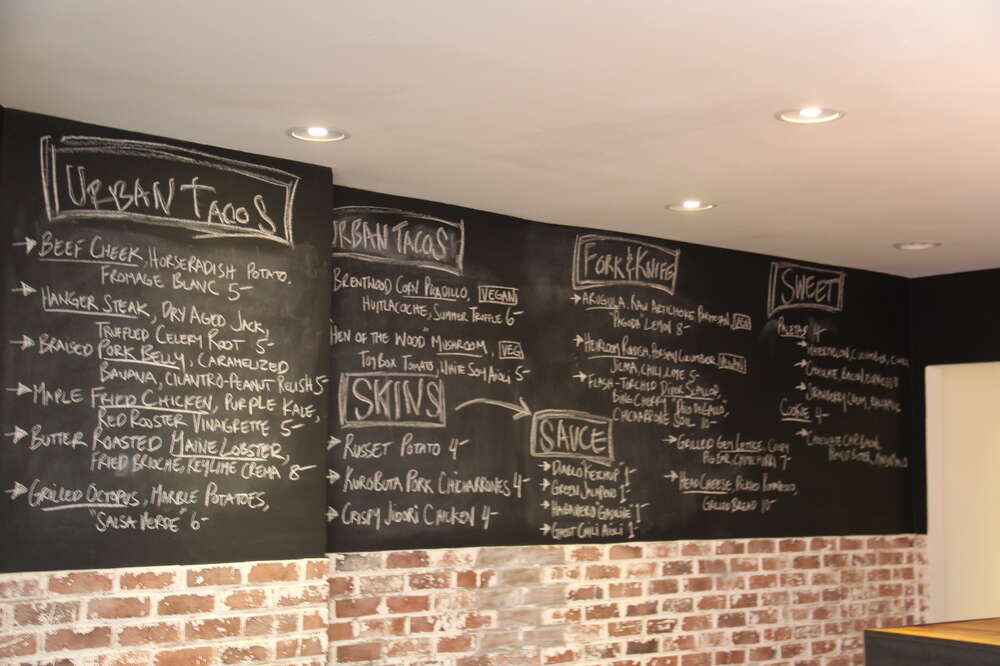 URBAN TACOS
BEEF CHEEK, HORSERADISH POTATO,
FROMAGE BLANC 5-
HANGER STEAK, DRY AGED JACK,
TRUFFLED CELERY ROOT 5-
BRAISED PORK BELLY, CARAMELIZED
BANANA, CILANTRO-PEANUT RELISH 5-
MAPLE FRIED CHICKEN, PURPLE KALE,
RED ROOSTER VINAGRETTE 5-
BUTTER ROASTED MAINE LOBSTER,
FRIED BRIOCHE, KEYLIME CREMA 8-
GRILLED OCTOPUS, MARBLE POTATOES,
"SALSA VERDE" 6-
RBAN TACOS
BRENTWOOD CORN PICADILLO, VEGAN
HUITLACOCHE, SUMMER TRUFFLE 6-
HEN OF THE WOOD" MUSHROOM, VEG
TOY BOX TOMATO, WHITE SOY AIOLI 5-
SKINS
RUSSET POTATO 4-
KUROBUTA PORK CHICHARRONES 4-
CRISPY JIDORI CHICKEN 4-
SAUCE
DIABLO KETCHUP 1-
GREEN JALAPENO 1-
HABANERO GASOLINE 1-
GHOST CHILI AIOLI 1-
FORK & KNIFE
ARUGULA, RAW ARTICHOKE, PARMESAN VEG
PAGODA LEMON 8-
HEIRLOOM RADISH, PERSIAN CUCUMBER
JICAMA, CHILI, LIME 5-
FLASH-TORCHED DIVER SCALLOP,
BING CHERRY PICO DE GALLO,
CHICHARRONE SOIL 10-
GRILLED GEM LETTUCE,
PIG EAR, 7
HEAD CHEESE,
GRILLED BREAD 10-
SWEET
PALETAS 4-
WATERMELON, CUCUMBER, CHILI
CHOCOLATE, BACON, ESPRESSO
STRAWBERRY, CREAM,
COOKIE 4-
CHOCOLATE